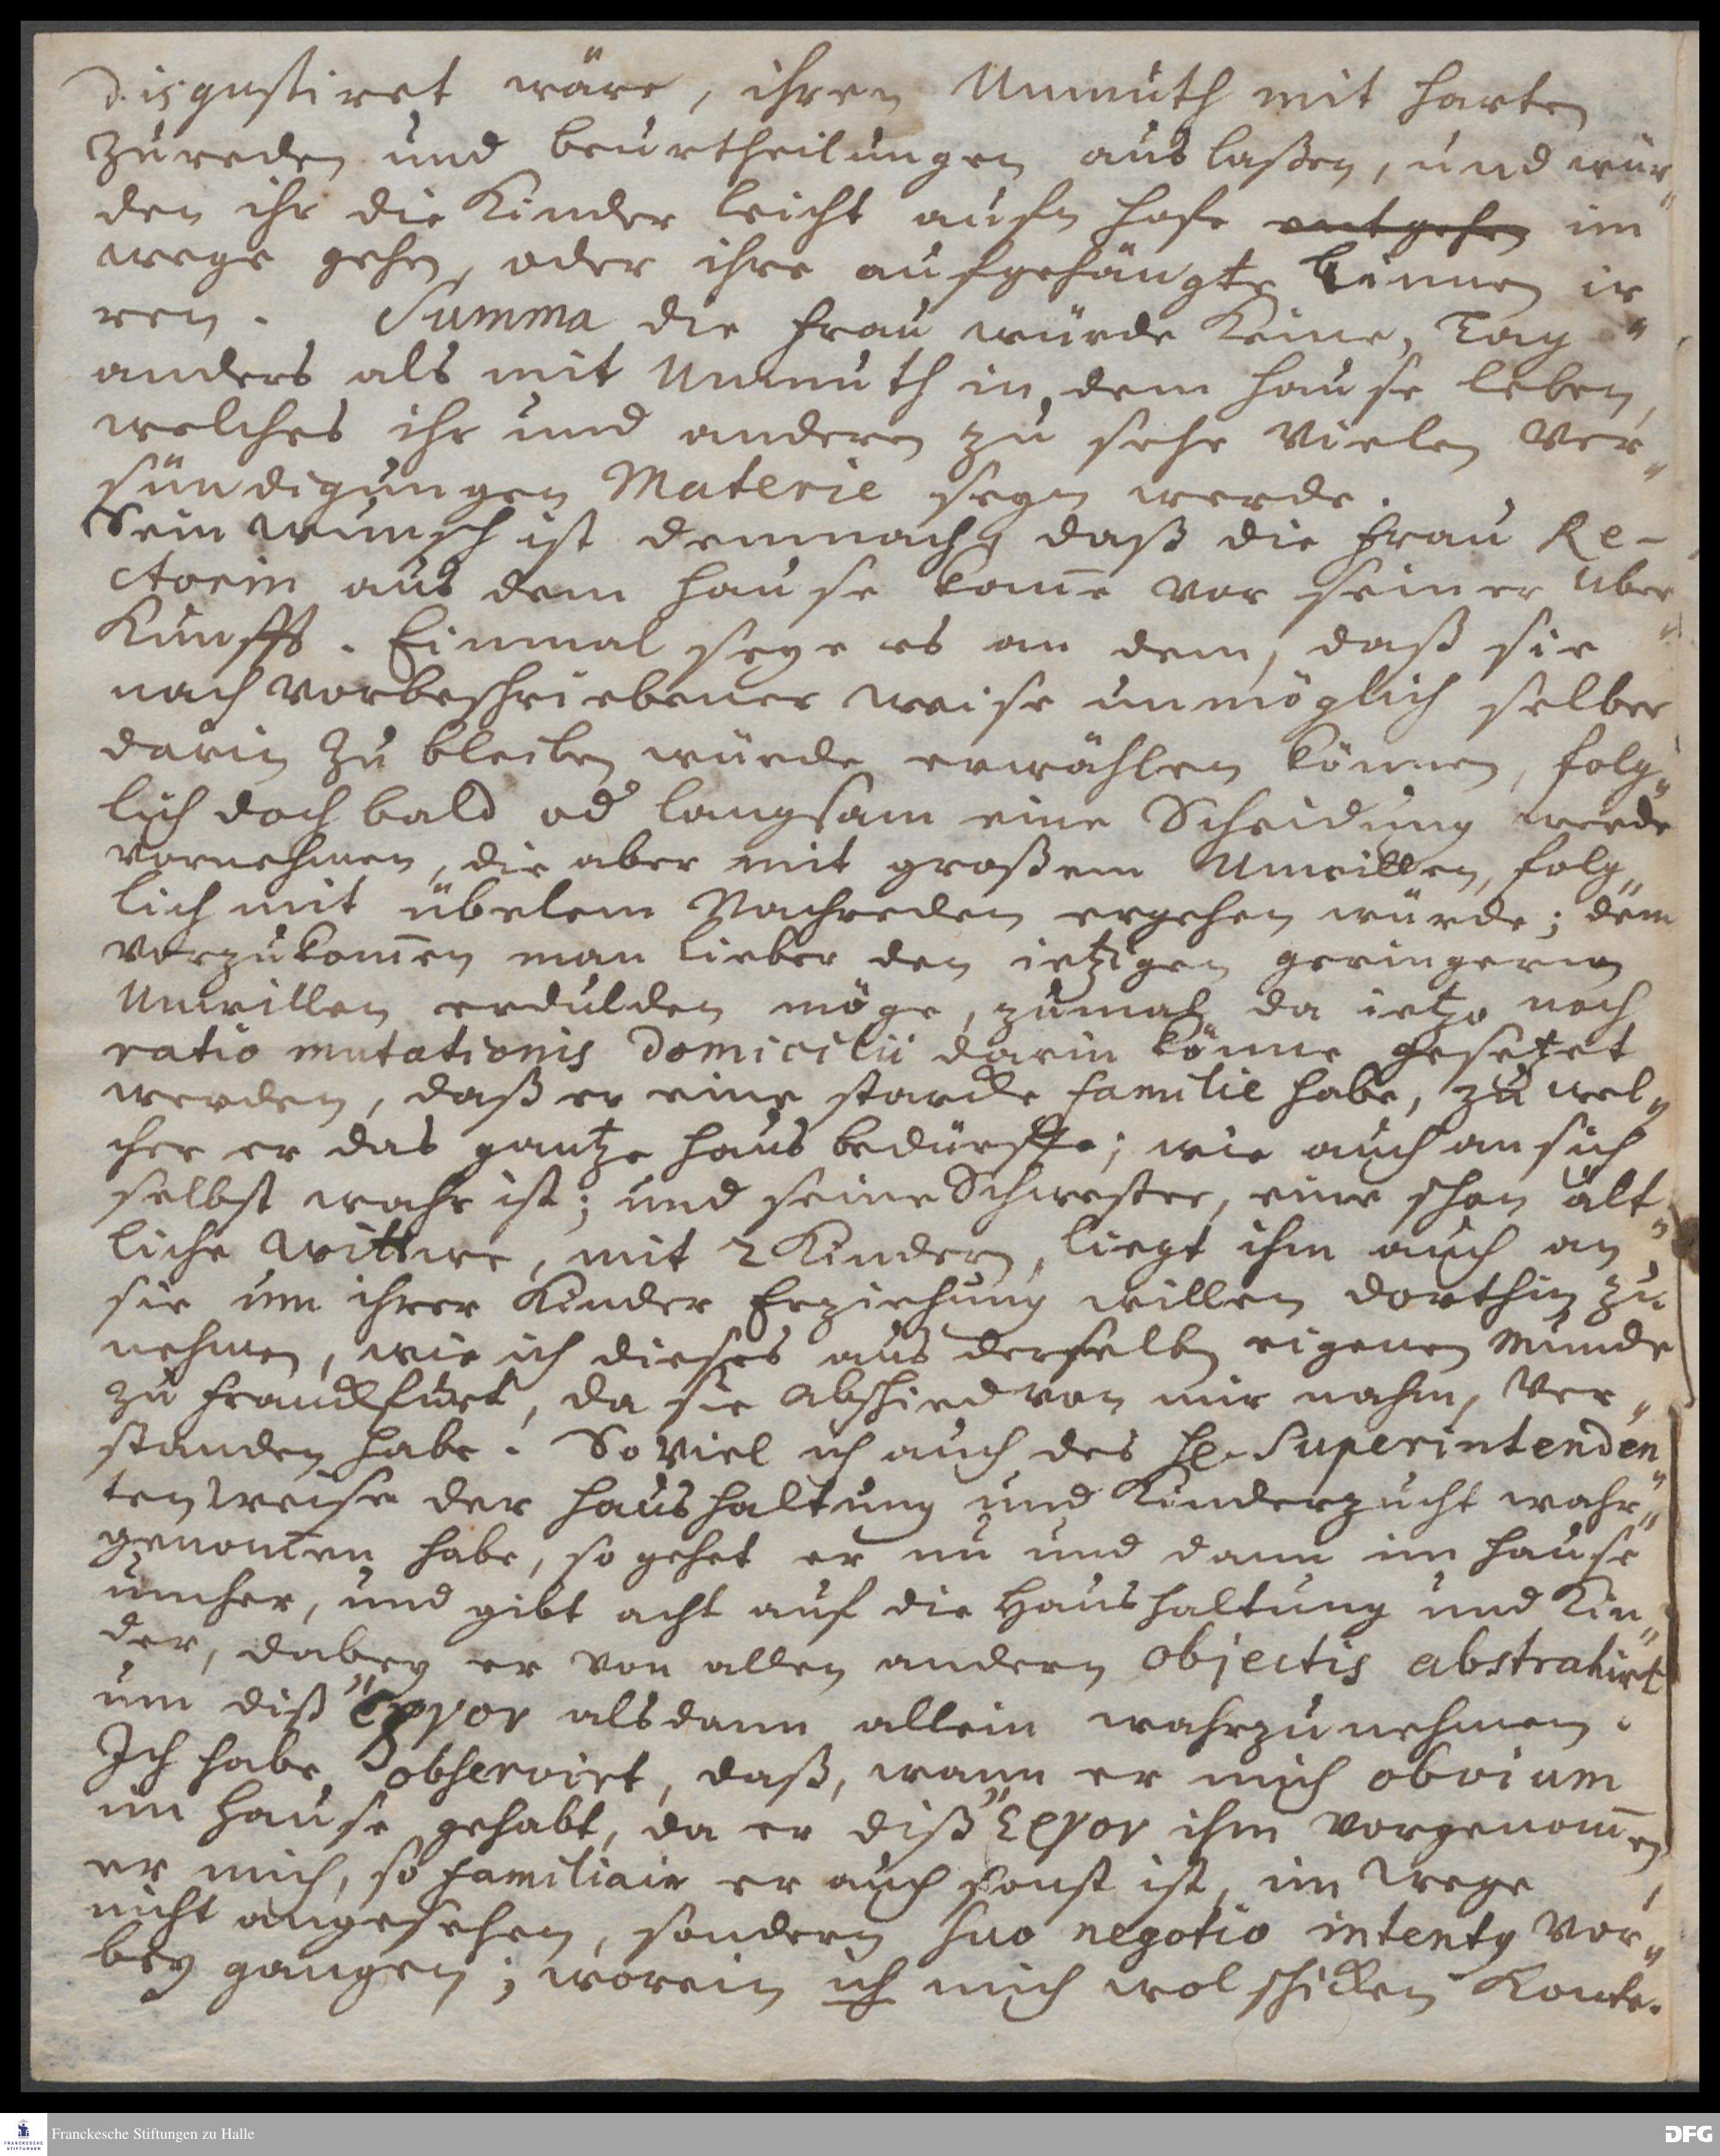 disgustiret wäre, ihren Unmuth mit harten
zureden und beurtheilungen auslaßen, und wür„
den ihr die Kinder leicht aufm hofe entgehen im
wege gehen, oder ihre aufgehängte Linnen ir„
ren. Summa die Frau würde keine Tag
anders als mit Unmuth in dem hause leben,
welches ihr und anderen zu sehr vielen Ver„
sündigungen Materie seyn werde.
Sein wunsch ist demnach, daß die Frau Re-
ctorin aus dem hause kom̅e vor seiner Uber„
Kunfft. Einmal seye es an dem, daß sie
nach vorbeschriebener weise unmöglich selber
darin zu bleiben würde erwählen können, folg„
lich doch bald od langsam eine Scheidung werde
vornehmen, die aber mit großem Unwillen, folg„
lich mit übelem Nachreden ergehen würde; dem
vorzukom̅en man lieber den ietzigen geringeren
Unwillen erdulden möge, zumahl da ietzo noch
ratio mutationis domicilii darin könne gesetzet
werden, daß er eine starcke familie habe, zu wel„
cher er das gantze haus bedürffe; wie auch an sich
selbst wahr ist; und seine Schwester, eine schon ält„
liche Wittwe, mit 2 Kindern, liegt ihm auch an,
sie um ihrer Kinder Erziehung willen dorthin zu
nehmen, wie ich dieses aus derselben eigenen Munde
zu Franckfurt, da sie Abschied von mir nahm, Ver„
standen habe. So viel ich auch des H. Superintenden„
ten weise der haushaltung und Kinderzucht wahr„
genom̅en habe, so gehet er nu und dann im hause
umher, und gibt acht auf die Haushaltung und Kin„
der, dabey er von allen andern objectis abstrahirt
um diß ἔργον alsdann allein wahrzunehmen.
Ich habe observirt, daß, wann er mich obvium
im Hause gehabt, da er diß ἔργον ihm vorgenom̅en,
er mich, so familiair er auch sonst ist, im wege
nicht angesehen, sondern suo negotio intentus vor„
bey gangen; worein ich mich wol schicken konte.
Franckesche Stiftungen zu Halle
FRANCKESCHE STIFTUNGEN
DFG